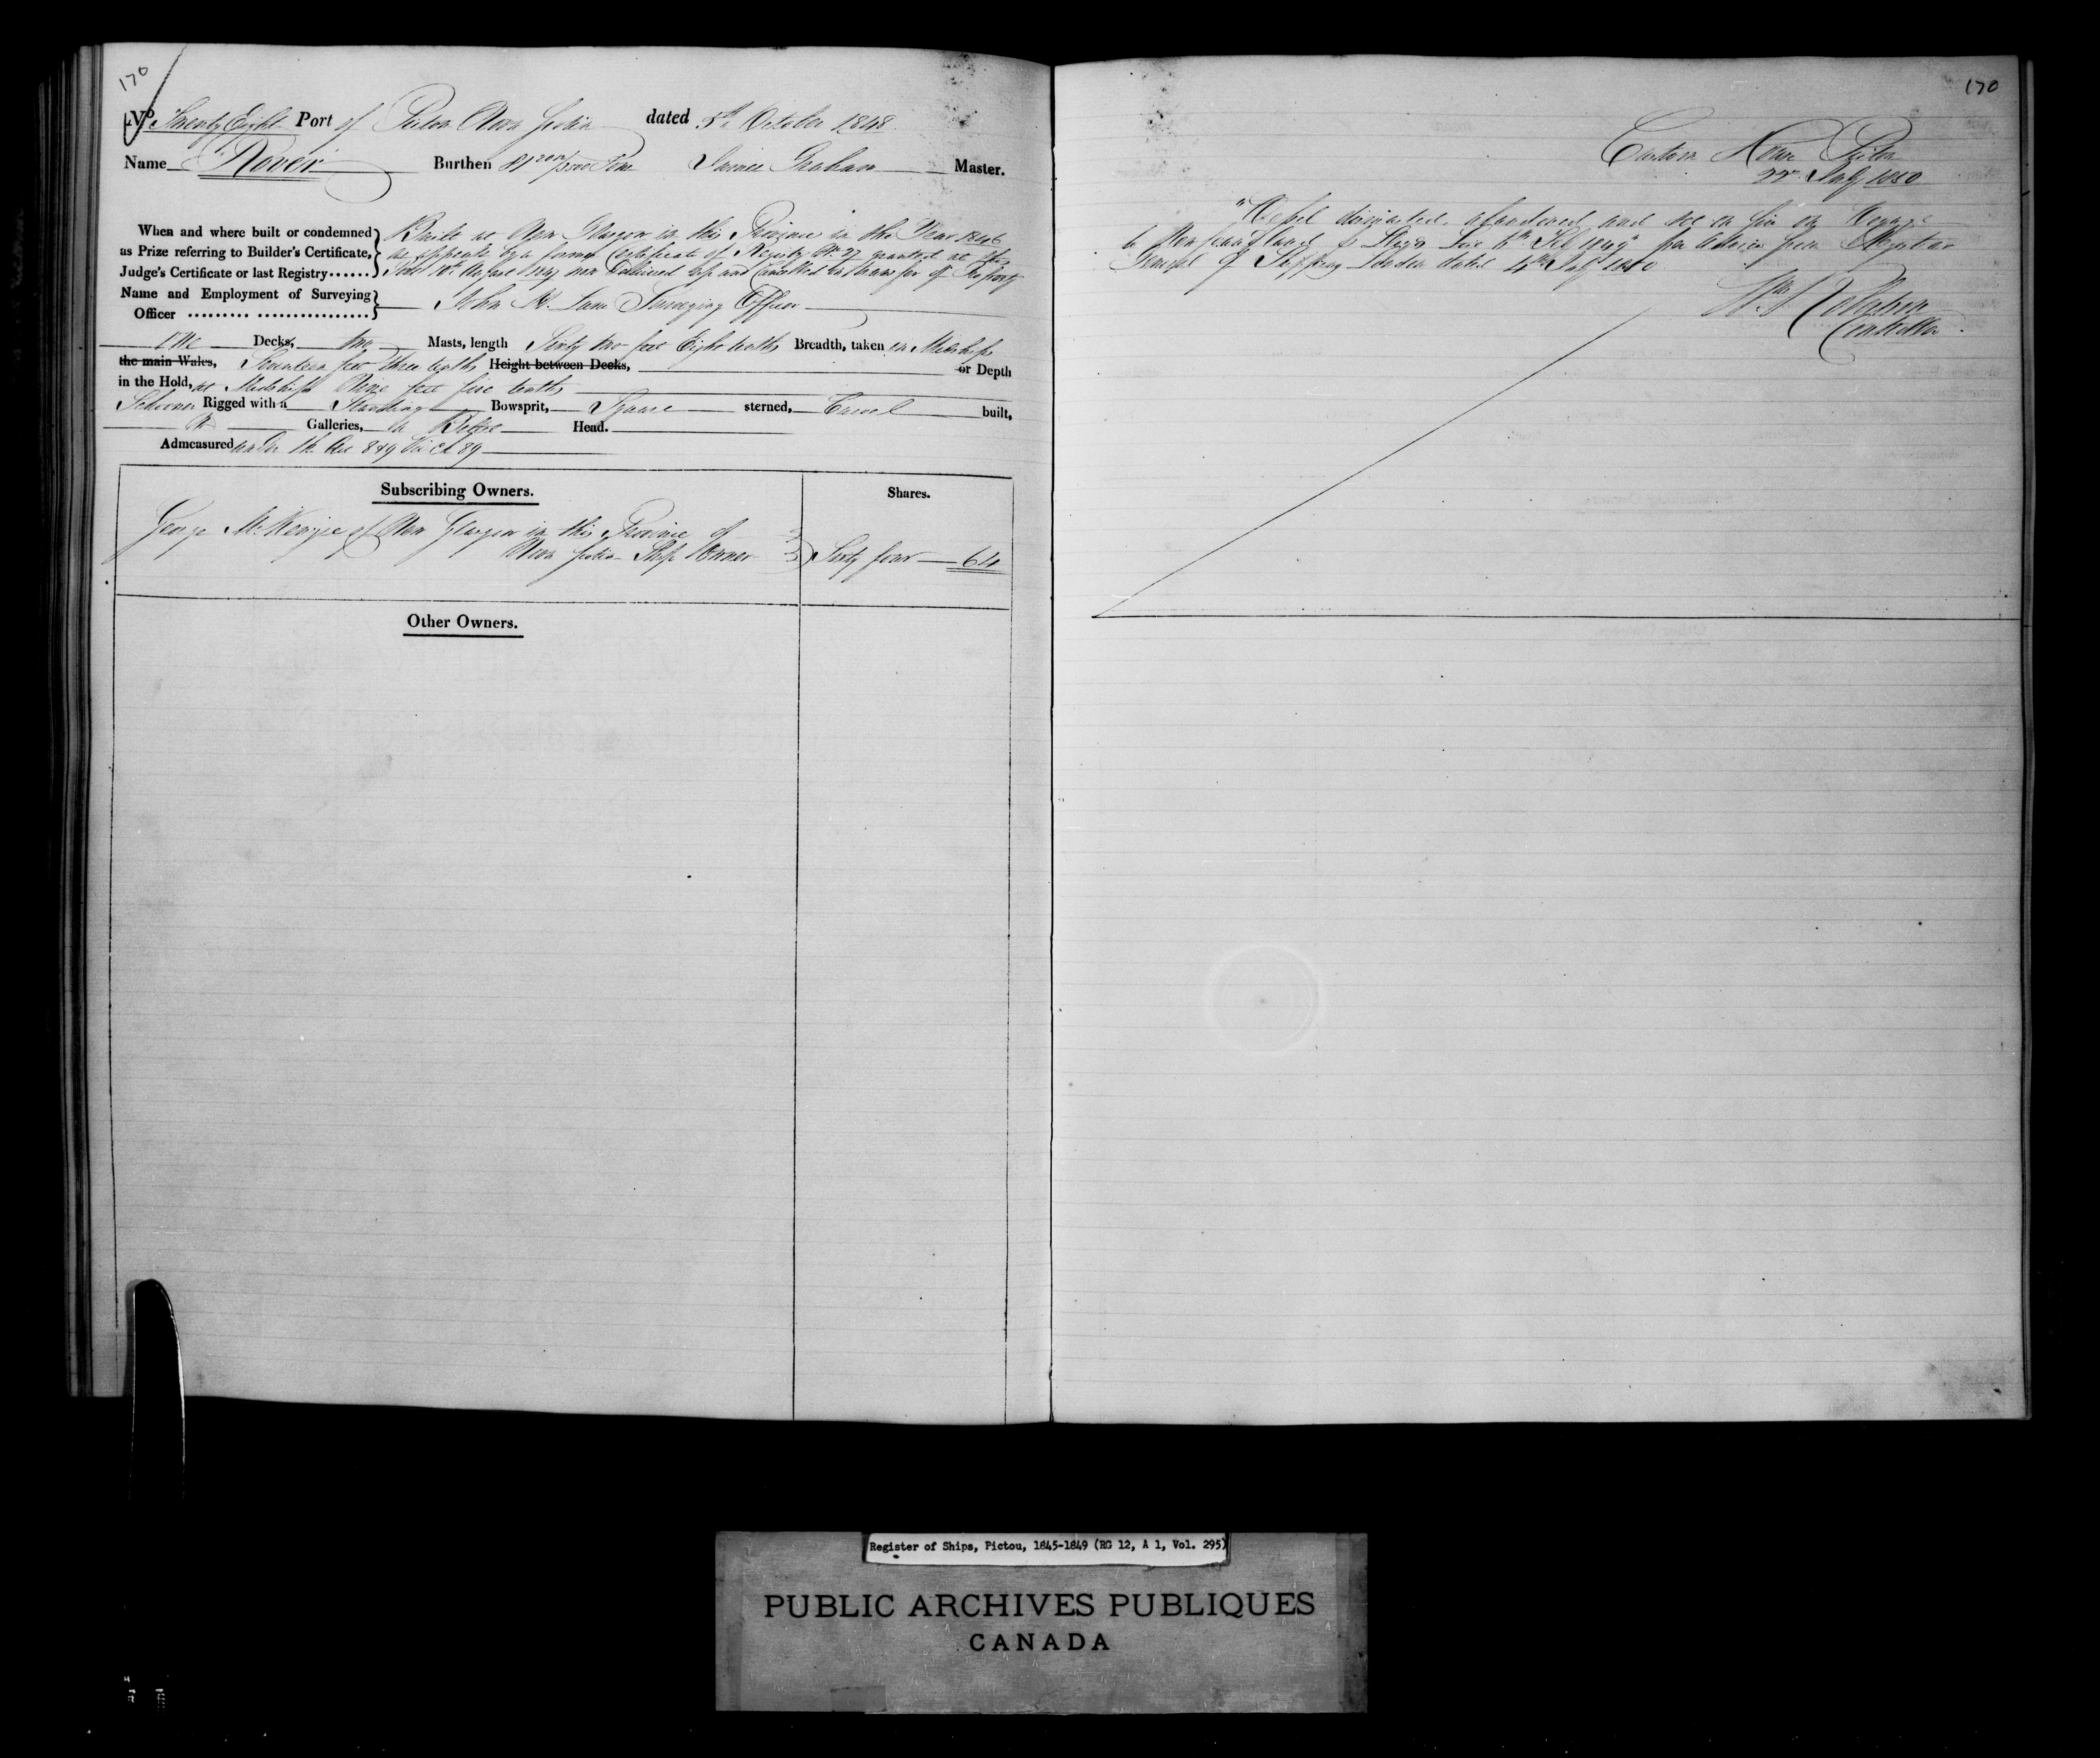 170
No. Twenty Eight Port of Pictou Nova Scotia dated 5th October 1848
Name Rover Burthen Tons James Graham Master.
When and where built or condemned
as Prize referring to Builder's Certificate,
Judge's Certificate or last Registry......
Built at New Glasgow in this Province in the Year 1846
as appears by a former Certificate of Registry No. 27 granted at this
Port 10th August 1847 now delivered up and Cancelled Transfer of Property
Name and Employment of Surveying
Officer ......... .................
John Surveying Officer
One Decks, two Masts, length Sixty two feet Eight tenths Breadth, taken in Midships
the main Wales, Seventeen feet three tenths Height between Decks, or Depth
in the Hold, at Midships Nine feet five tenths
Schooner Rigged with a Standing Bowsprit, Square sterned, Carvel built,
No Galleries, a Head.
Admeasured under the Act 8 & 9 Vic Ch 89
Subscribing Owners.
Shares.
George McKenzie of New Glasgow in this Province of
Nova Scotia Ship Owner Sixty four 64
Other Owners.
170
Custom House Pictou
22nd July 1850
"Vessel dismasted, abandoned and set on fire on Voyage
from Newfoundland to Sligo 6th Feb 1849" per Advice from Registrar
General of Shipping London dated 4th July 1850
Controller
Register of Ships, Pictou, 1845-1849 (RG 12, A 1, Vol. 295)
PUBLIC ARCHIVES PUBLIQUES
CANADA